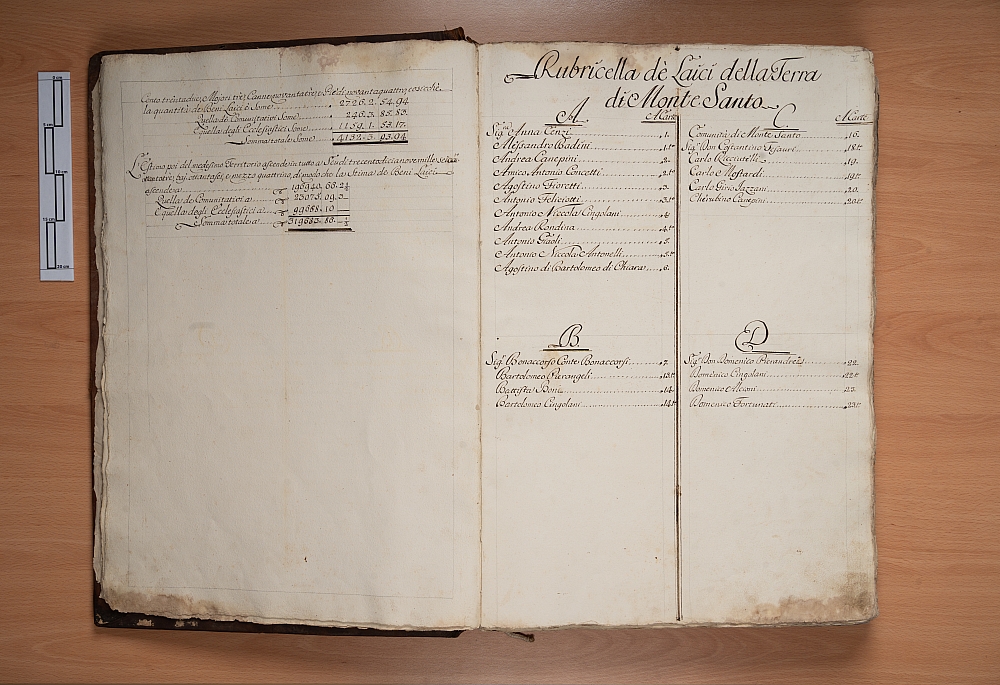 Cento trentadue, Mojori tre, Canne novanta tre, e Piedi novantaquattro, cosicchè
la quantità de Beni Laici è Some 2726. 2. 54. 94
Quella de Comunitativi Some 246. 3. 85. 83.
E quella degli Ecclesiastici Some 1159. 1. 53. 17.
Somma totale Some 4132. 3. 93. 94
L'Estimo poi del medesimo Territorio ascende in tutto a Scudi trecento diciannove mille, seicen
ottantatre, baj. ottantasei, e mezzo quattrino, di modo che la Stima de Beni Laici
ascende a 196940. 66. 2½
Quella de Comunitativi a 23075. 09. 3
E quella degli Ecclesiastici a 99668. 10
Somma totale a 319683. 86. ½
Rubricella dè Laici della Terra
di Monte Santo
A
Carte
Sig.ra Anna Cenzi 1.
Alessandro Badini 1.t
Andrea Canepini 2.
Amico Antonio Concetti 2.t
Agostino Fioretti 3.
Antonio Feliciotti 3.t
Antonio Niccola Cingolani 4.
Andrea Rondina 4.t
Antonio Giaoli 5.
Antonio Niccola Antonelli 5.t
Agostino di Bartolomeo di Chiara 6.
B
Sig.r Bonaccorso Conte Bonaccorsi 7.
Bartolomeo Pierangeli 13.t
Battista Boni 14.
Bartolomeo Cingolani 14.t
C
Carte
Comunità di Monte Santo 16.
Sig.r Don Costantino Tesauri 18.t
Carlo Ricciutelli 19.
Carlo Mostardi 19.t
Carlo Gino Jazzani 20.
Cherubino Canepini 20.t
D
Sig.r Don Domenico Pierandrei 22.
Domenico Cingolani 22.t
Domenico Alcioni 23.
Domenico Fortunati 23.t
0 cm
5 cm
10 cm
15 cm
20 cm